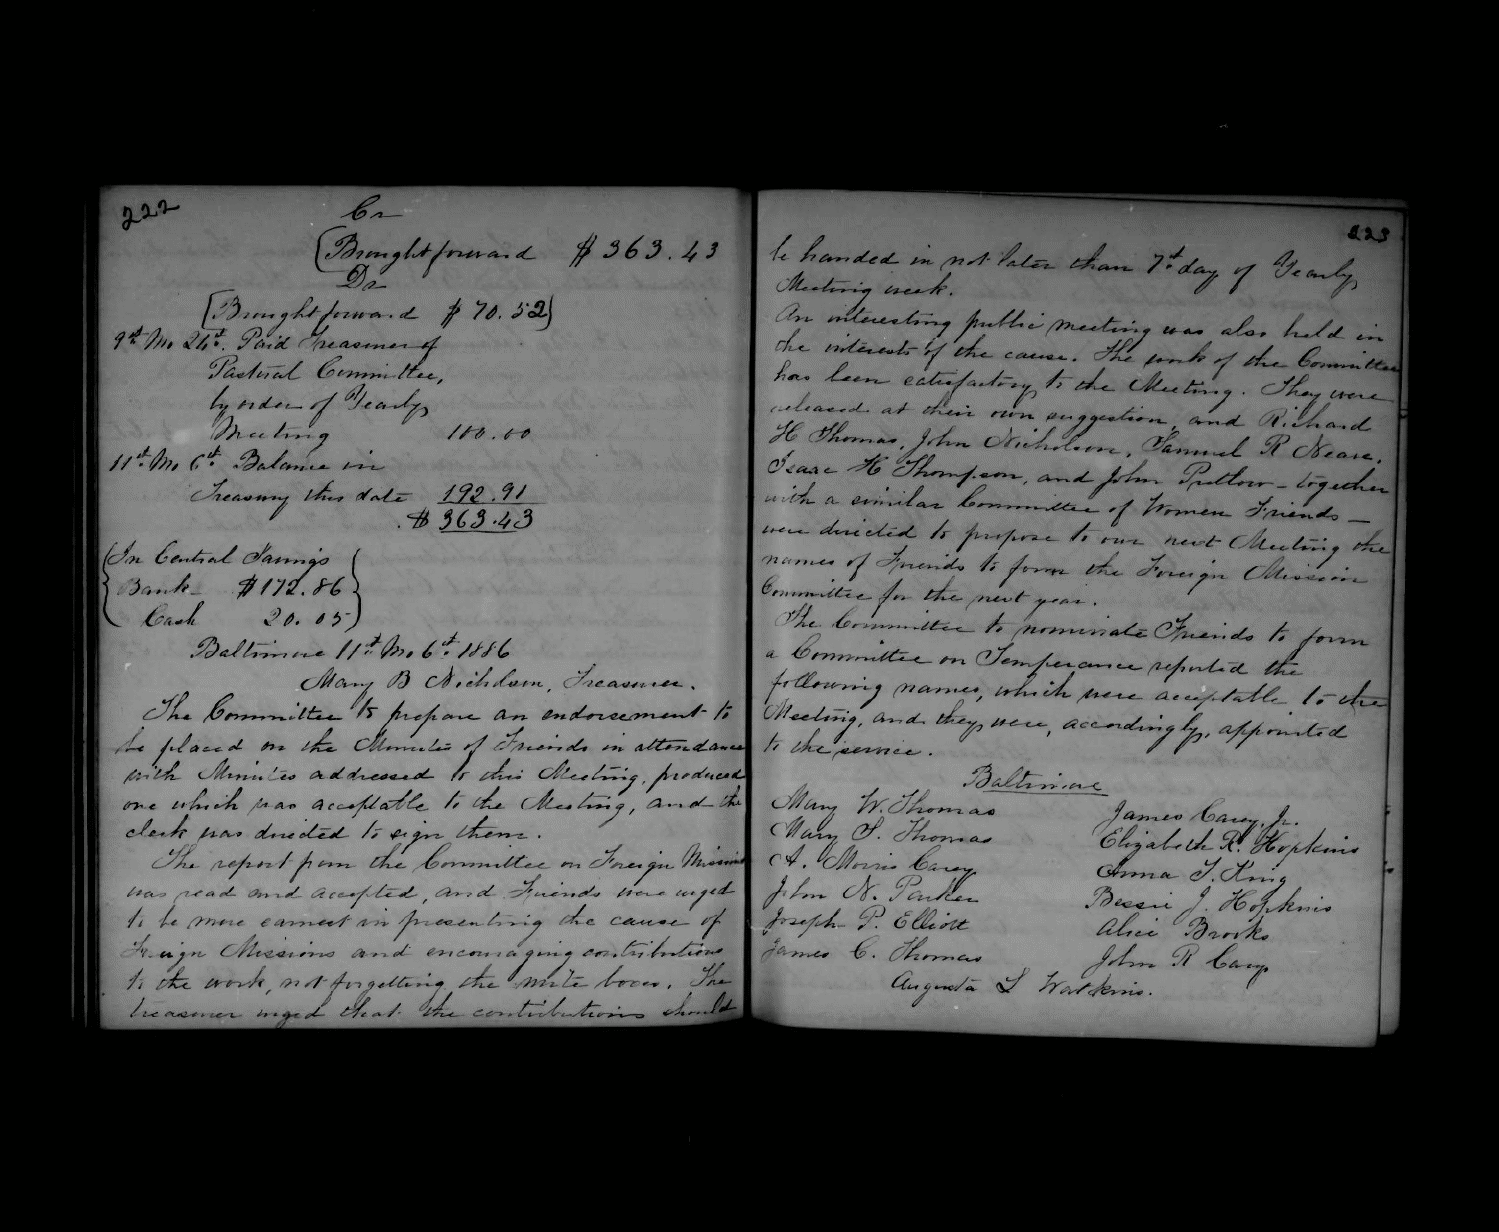 222
Cr
(Brought forward $363.43
Dr
(Brought forward $70.52)
9th Mo 24th. Paid Treasurer of
Pastoral Committee,
by order of Yearly
Meeting 100.00
11th Mo 6th Balance in
Treasury this date 192.91
$363.43
(In Central Savings
Bank $172.86
Cash 20.05)
Baltimore 11th Mo 6th 1886
Mary B Nicholson, Treasurer.
The Committee to prepare an endorsement to
be placed on the Minutes of Friends in attendance
with Minutes addressed to this Meeting, produced
one which was acceptable to the Meeting, and the
clerk was directed to sign them.
The report from the Committee on Foreign Missions
was read and accepted, and Friends were urged
to be more earnest in presenting the cause of
Foreign Missions and encouraging contributions
to the work, not forgetting the mite boxes. The
treasurer urged that the contributions should
223
be handed in not later than 7th day of Yearly
Meeting week.
An interesting public meeting was also held in
the interests of the cause. The work of the Committee
has been satisfactory to the Meeting. They were
released at their own suggestion, and Richard
H Thomas, John Nicholson, Samuel R Neave,
Isaac H Thompson, and John Pretlow – together
with a similar Committee of Women Friends –
were directed to propose to our next Meeting the
names of Friends to form the Foreign Mission
Committee for the next year.
The Committee to nominate Friends to form
a Committee on Temperance reported the
following names, which were acceptable to the
Meeting, and they were, accordingly, appointed
to the service.
Baltimore
Mary W. Thomas James Carey, Jr.
Mary S. Thomas Elizabeth R. Hopkins
A. Morris Carey Anna T. King
John N. Parker Bessie J. Hopkins
Joseph P. Elliott Alice Brooks
James C. Thomas John R Cary
Augusta L Watkins.